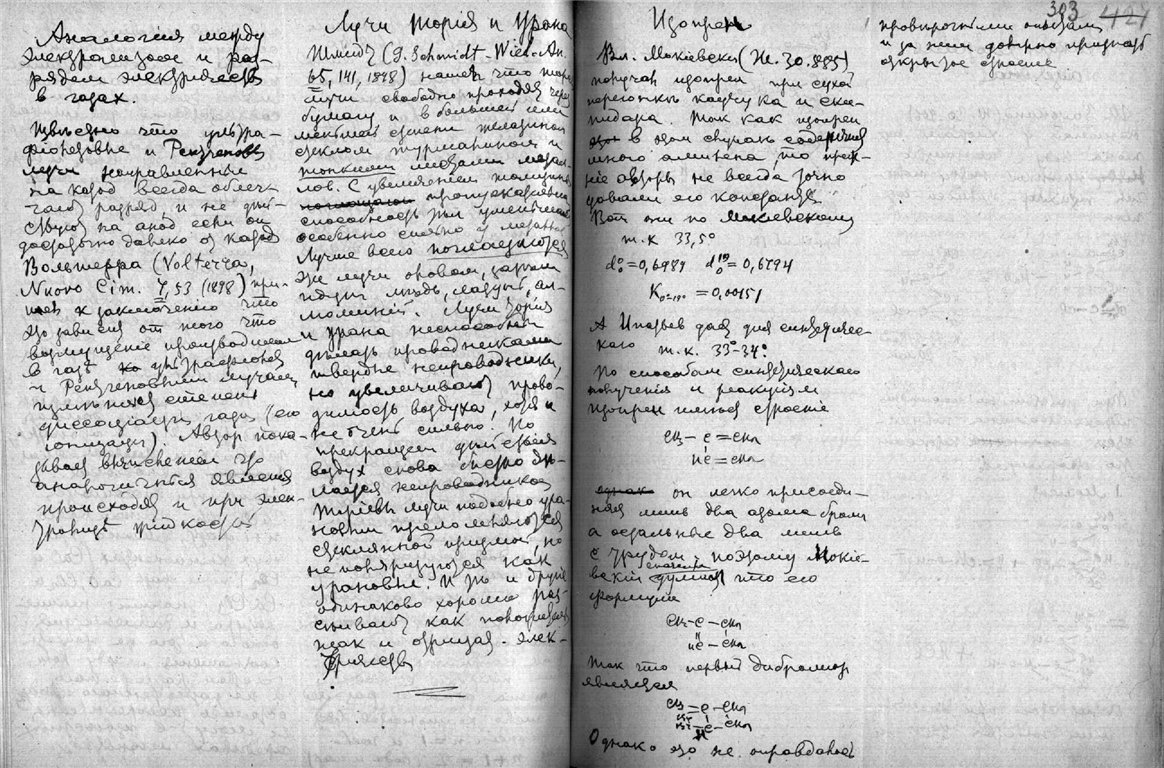 Аналогия между
электролизом и раз-
рядом электричества
в газах.
Известно что ультра-
фiолетовые и Рентгеновы
лучи направленные
на катод всегда облег-
чают разряд и не дей-
ствуют на анод если он
достаточно далеко от катода
Вольтерра (Volterra,
Nuovo Cim. 7, 53 (1898) при-
шел к заключению что
это зависит от того что
возмущение производимое
в газе ко ультрафiолет
и Рентгеновыми лучами
степени
диссоцiации газа (его
iонизацiи). Автор пока-
зывает вычисленiем что
аналогичные явления
происходят и при элек-
тролизе жидкостей
Лучи тория и урана
Шмидт (G. Schmidt - Wied. An.
65, 141, 1898) нашел что тори
лучи свободно проходят через
бумагу и в большей или
меньшей степени желатином
стеклом турмалином и
тонкими листами метал-
лов. С увеличением толщины
пропускательная
способность эта уменьшается
особенно сильно у металлов
Лучше всего поглощаются
же лучи оловом, затем
идут медь, латунь, ал-
юминий. Лучи тория
и урана неспособны
делать проводниками
твердые непроводники,
но увеличивают прово-
димость воздуха, хотя и
не очень сильно. По
прекращении действия
воздух снова быстро де-
лается непроводником
Ториевы лучи подобно ура-
новым преломляются
стеклянной призмой, но
не поляризуются как
урановые. И те и другие
одинаково хорошо рас-
сеивают как положительн
так и отрицат. элек-
тричество
Изопрен
393 424
Вл. Мокiевский (Ж. 30. 885)
получал изопрен при сухой
перегонке каучука и ски-
пидара. Так как изопрен
в этом случае содержит
много амилена то преж-
ние авторы не всегда точно
давали его константы
Вот они по Мокiевскому
т.к 33,5°
d°₀=0,6989 d¹⁹₀=0,6794
K₀₋₁₉° = 0,00151
А Ипатьев дает для синтетичес-
каго т.к. 33°-34°.
По способам синтетического
получения и реакциям
изопрен имеет строение
CH₃ – C = CH₂
HC = CH₂
однако он легко присоеди-
няет лишь два атома брома
а остальные два лишь
с трудом, поэтому Мокiе-
вский сначала думал что его
формула
CH₃ – C – CH₂
HC – CH₂
Так что первый дибромюр
является
Однако это не оправдалось
и за ним должно признать
открытое строение